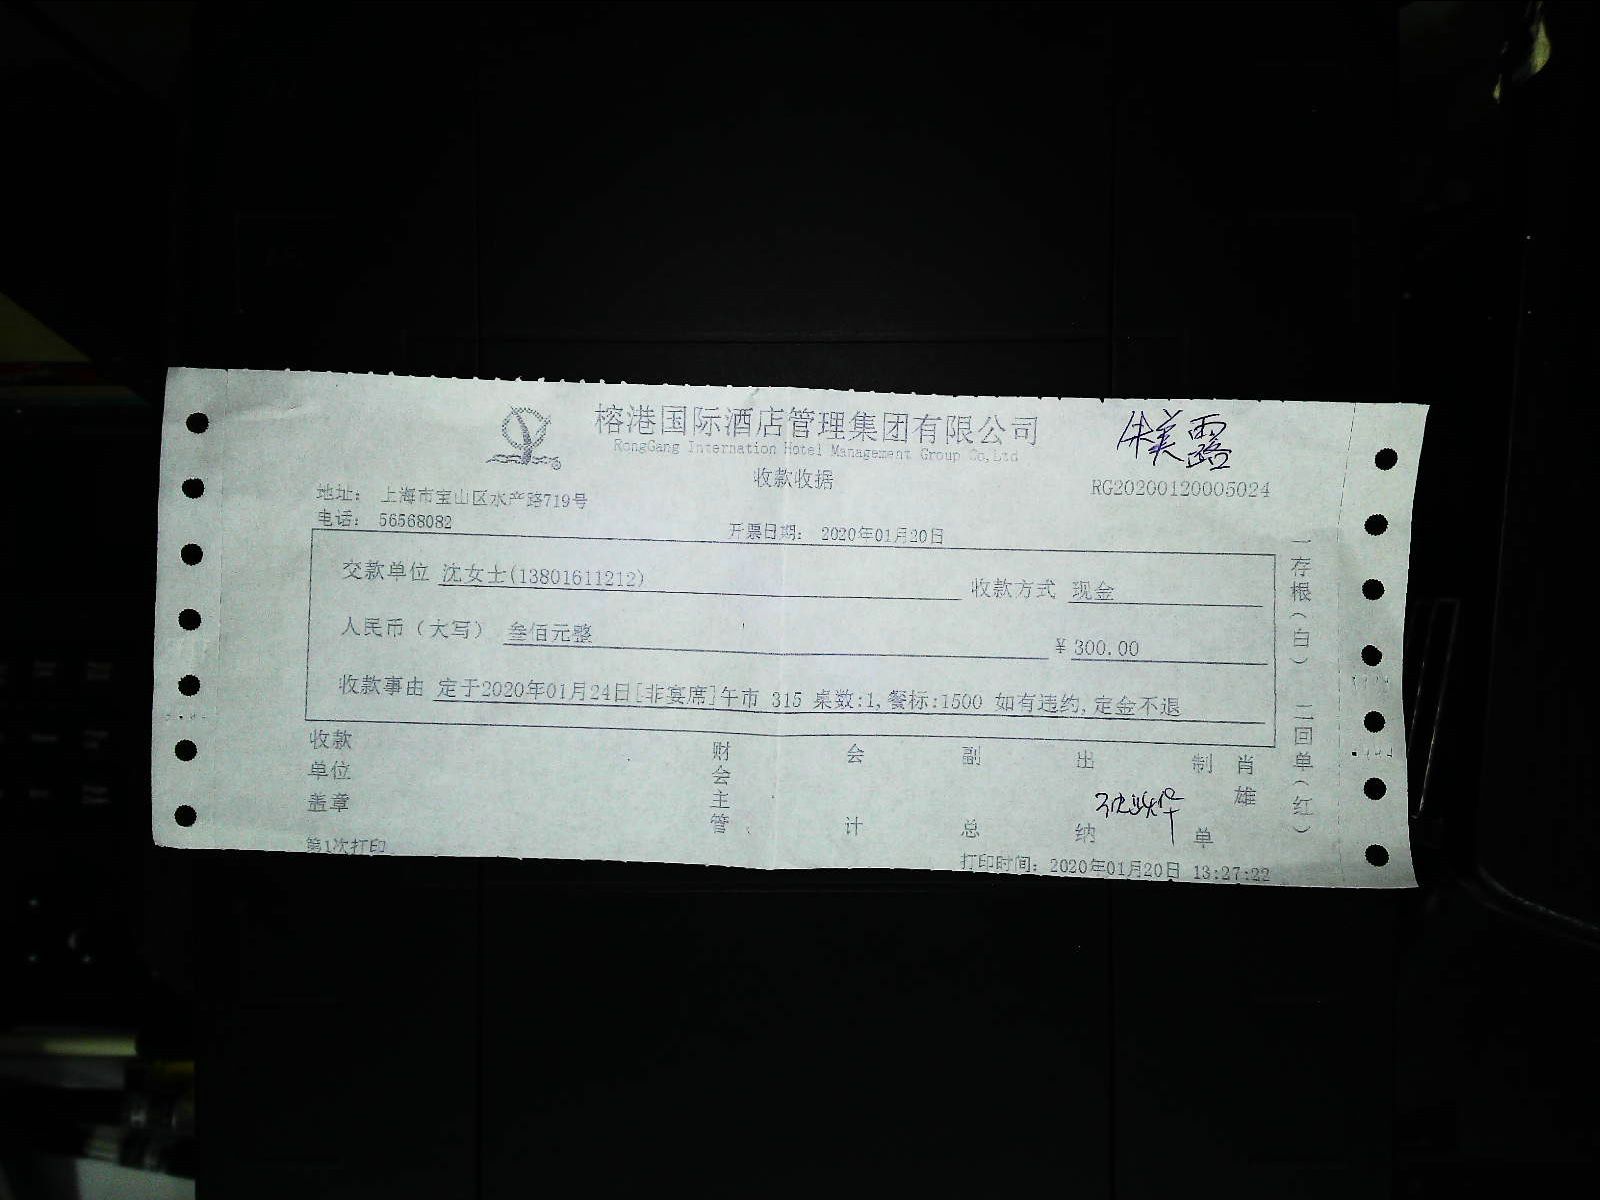 榕港国际酒店管理集团有限公司
RongGang Internation Hotel Management Group Co,Ltd
朱美露
收款收据
RG20200120005024
地址： 上海市宝山区水产路719号
电话： 56568082
开票日期： 2020年01月20日
交款单位 沈女士(13801611212) 收款方式 现金
人民币（大写） 叁佰元整 ¥ 300.00
收款事由 定于2020年01月24日[非宴席]午市 315 桌数:1,餐标:1500 如有违约,定金不退
一存根（白） 二回单（红）
收款单位盖章 财会主管 会计 副总 出纳 制单 肖雄
第1次打印
打印时间: 2020年01月20日 13:27:22